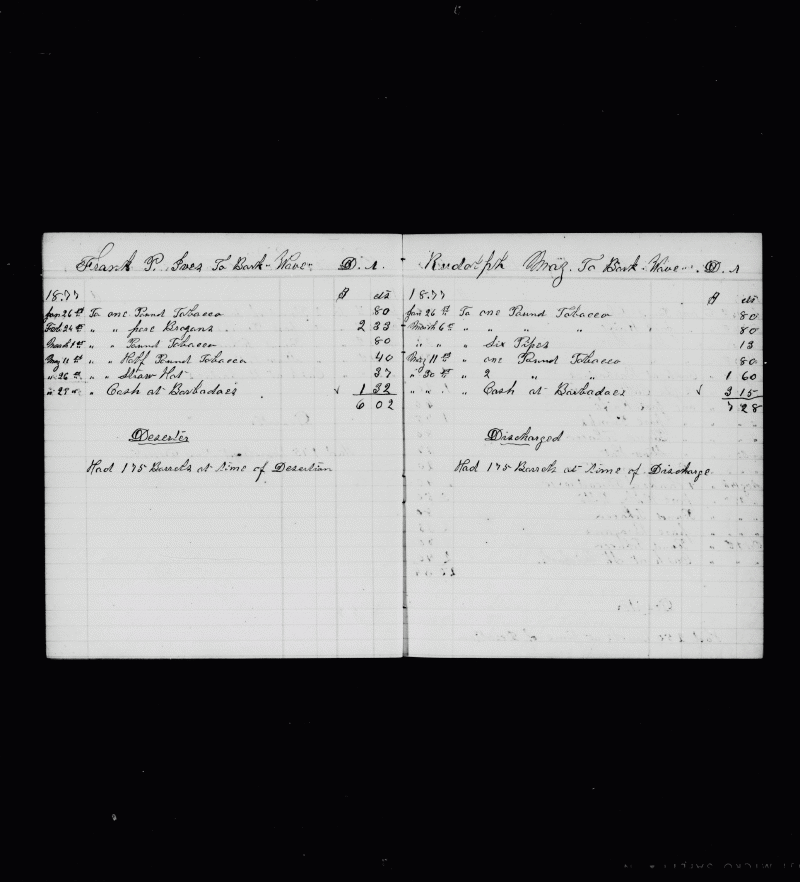 Frank P. Ives To Bark Wave D. r.
1877 $ cts
Jan 26th To one Pound Tobacco 80
Feb 24th " " pare Brogans 2 33
March 1st " " Pound Tobacco 80
May 11th " Half Pound Tobacco 40
" 26th " Straw Hat 37
" 29 " " Cash at Barbadoes √ 1 32
6 02
Deserter
Had 175 Barrels at time of Desertion
Rudolph To Bark Wave D. r
1877 $ cts
Jan 26th To one Pound Tobacco 80
March 6th " " " " 80
" " " Six Pipes 13
May 11th " one Pound Tobacco 80
" 30th " 2 " " 1 60
" " " Cash at Barbadoes √ 3 15
7 28
Discharged
Had 175 Barrels at time of Discharge